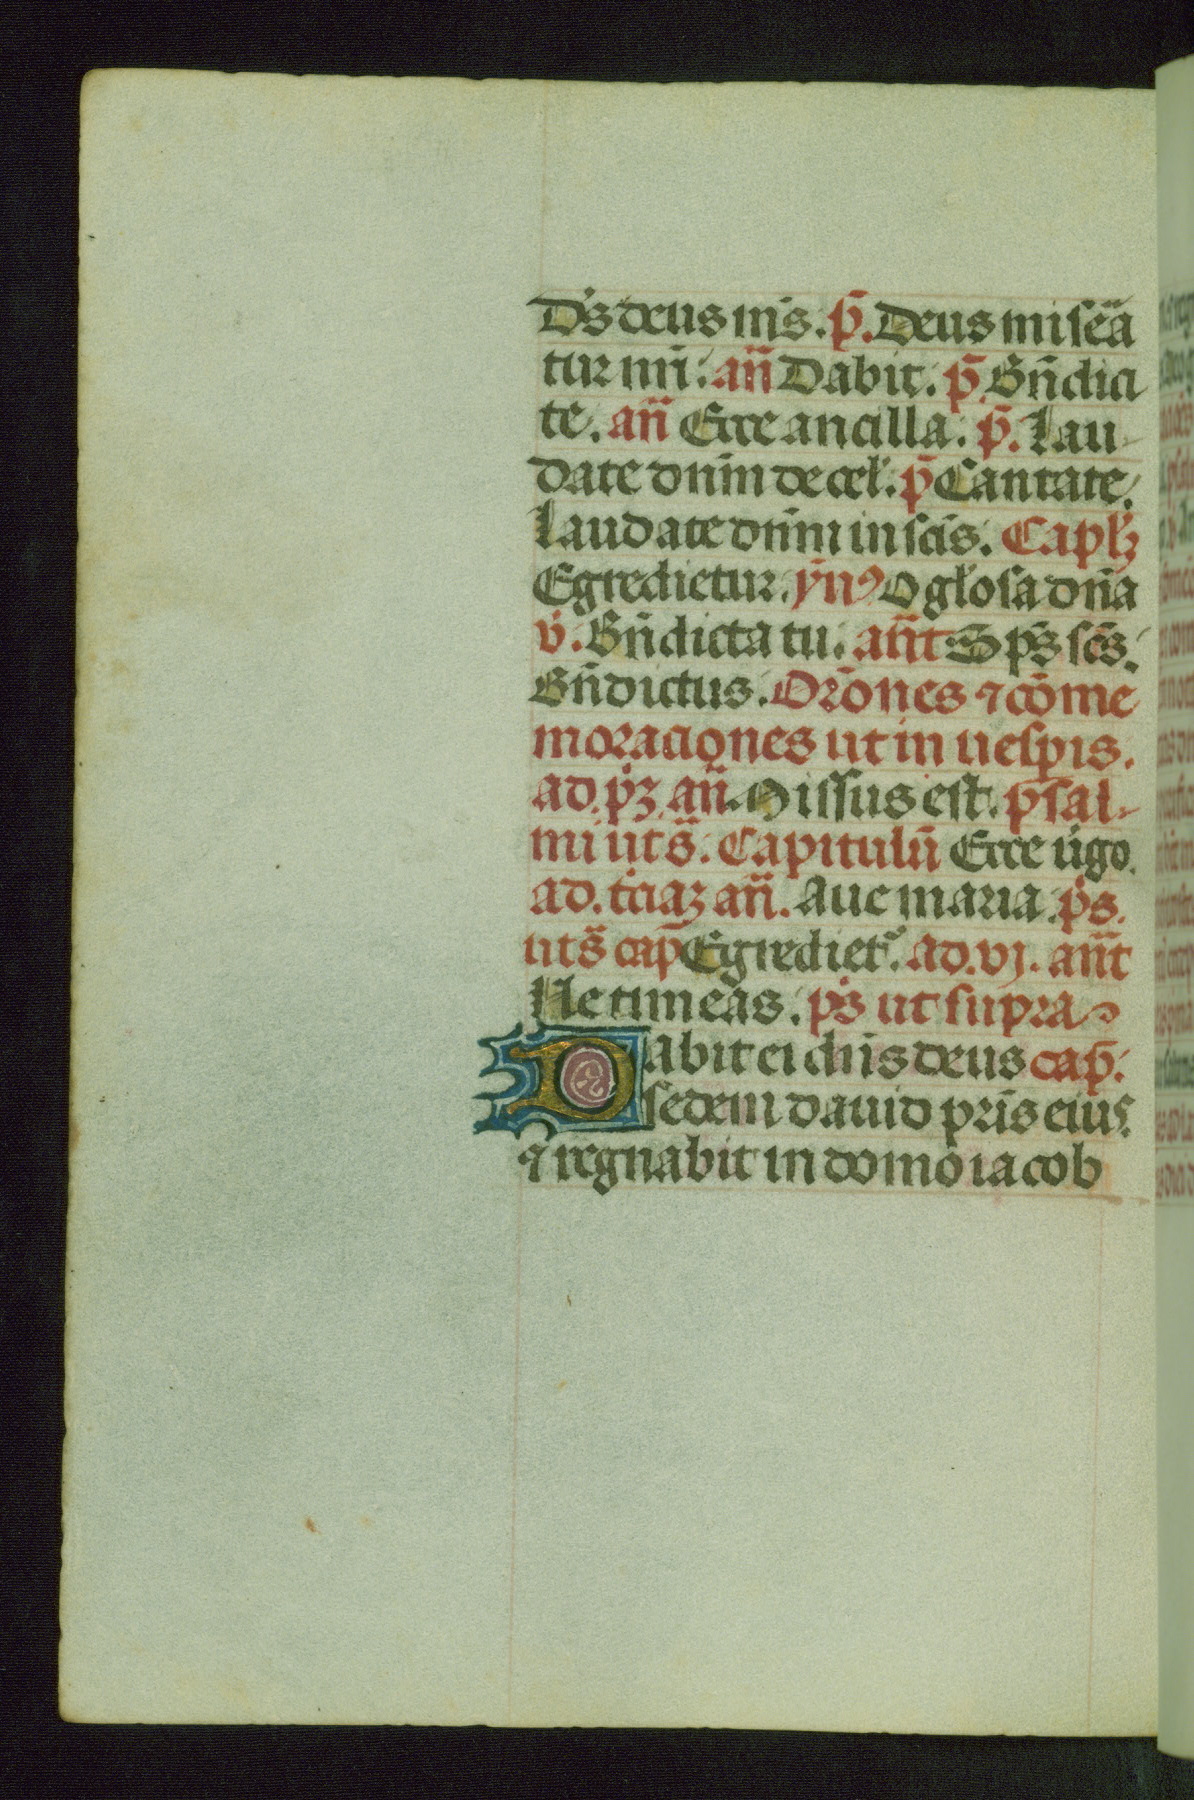 Ds deus ms̄. p̄. Deus misēa
tur nr̄i. añ Dabit. p̄. Bñdici
te. añ Ecce ancilla. p̄. Lau
date dnm̄ de cel̄. p̄ Cantate.
Laudate dnm̄ in scīs. Capl̄ꝫ
Egredietur. ȳnꝰ O gl̄osa dn̄a
v̄. Bn̄dicta tu. añt Sps̄ scs̄.
Bn̄dictus. Or̄ones ⁊ cōme
moraciones ut in uesp̄is.
ad. p̄ꝫ añ. Missus est. psal
mi ut s̄. Capitulū Ecce ůgo.
ad. t̄ciaꝫ añ. Aue maria. ps̄.
ut s̄ cap̄ Egrediet᷑. ad. vj. añt
Ne timeas. ps̄ ut supra
Dabit ei dn̄s deus cap̄.
sedem dauid pr̄is eius.
⁊ regnabit in domo iacob